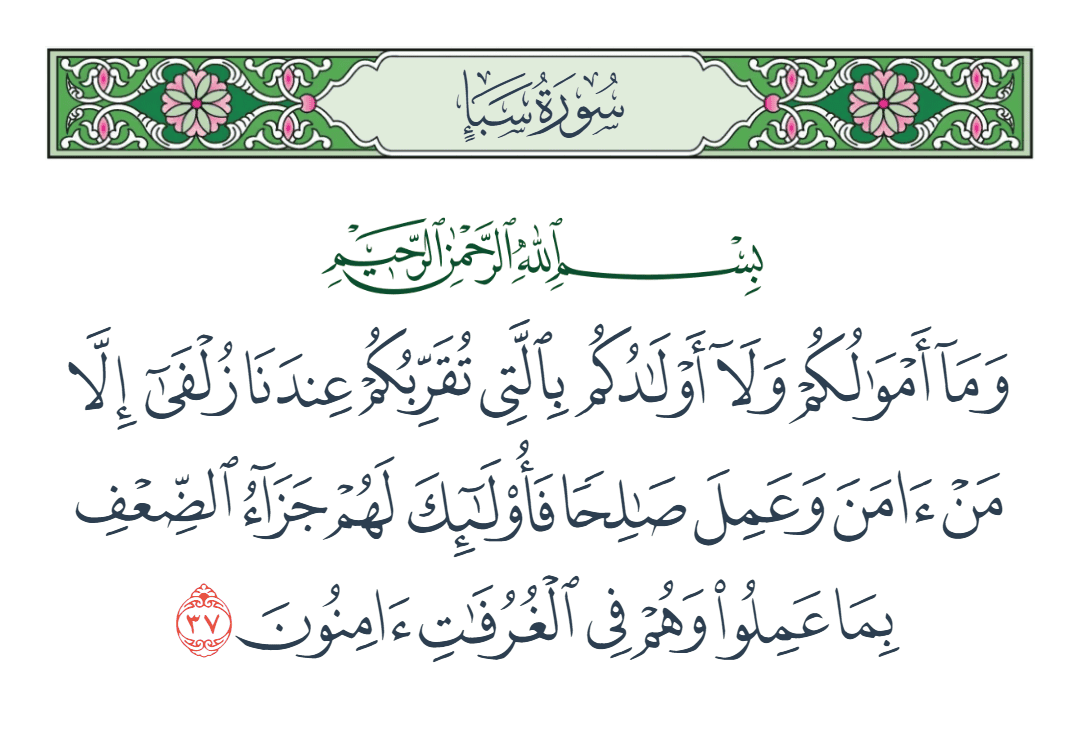 سُورَةُ سَبَإٍ
بِسْمِ ٱللَّهِ ٱلرَّحْمَٰنِ ٱلرَّحِيمِ
وَمَآ أَمْوَٰلُكُمْ وَلَآ أَوْلَٰدُكُم بِٱلَّتِى تُقَرِّبُكُمْ عِندَنَا زُلْفَىٰٓ إِلَّا
مَنْ ءَامَنَ وَعَمِلَ صَٰلِحًا فَأُو۟لَٰٓئِكَ لَهُمْ جَزَآءُ ٱلضِّعْفِ
بِمَا عَمِلُوا۟ وَهُمْ فِى ٱلْغُرُفَٰتِ ءَامِنُونَ ٣٧